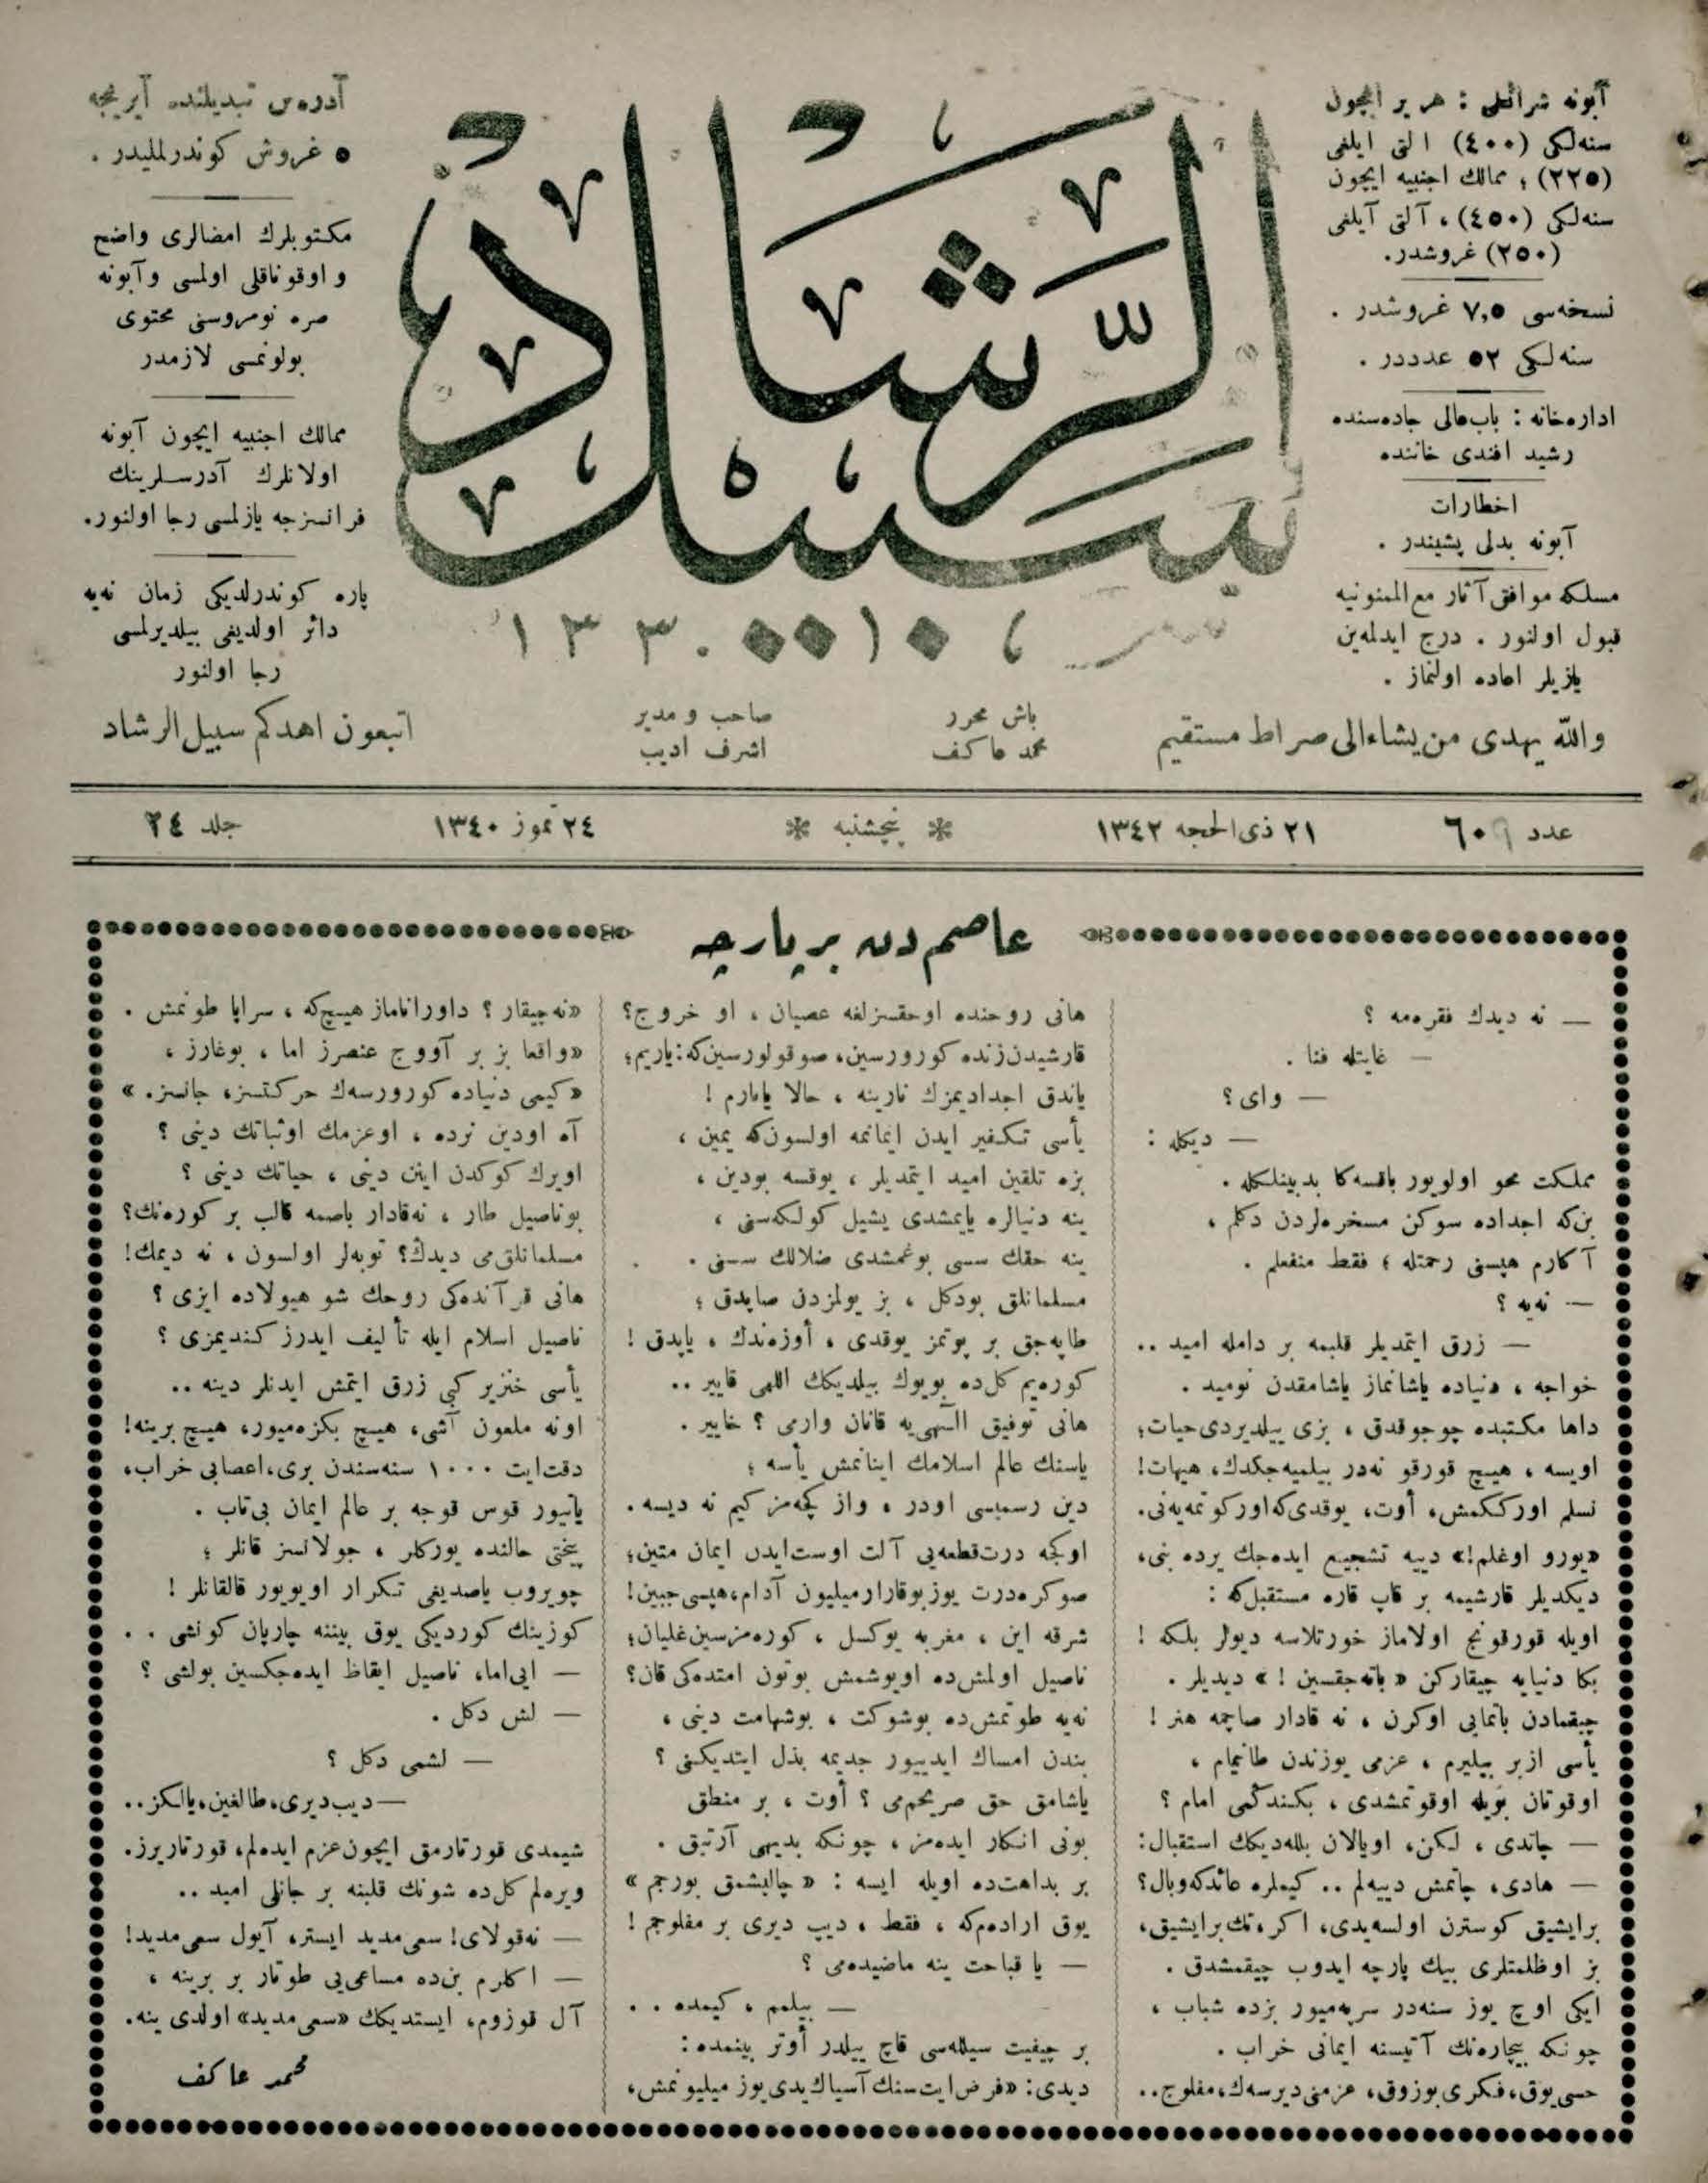 آبونه شرائطی : هر یر ایچون
سنه‌لكی (٤٠٠) ا لتی ایلغی
(٢٢٥) ؛ ممالك اجنبیه ایچون
سنه‌لكی (٤٥٠) ، آلتی آیلغی
(٢٥٠) غروشدر.
نسخه‌سی ٧,٥ غروشدر .
سنه‌لكی ٥٢ عدددر .
اداره‌خانه : باب‌عالی جاده‌سنده
رشید افندی خاننده
اخطارات
آبونه بدلی پشیندر .
مسلكه موافق آثار مع‌الممنونیه
قبول اولنور . درج ایدلمه‌ین
یازیلر اعاده اولنماز .
سبیل الرشاد
آدره‌س تبدیلنده آیریجه
٥ غروش كوندرلملیدر .
مكتوبلرك امضالری واضح
و اوقوناقلی اولمسی وآبونه
صره نومروسنی محتوی
بولونمسی لازمدر
ممالك اجنبیه ایچون آبونه
اولانلرك آدرسلرینك
فرانسزجه یازلمسی رجا اولنور.
پاره كوندرلدیكی زمان نه‌یه
دائر اولدیغی بیلدیرلمسی
رجا اولنور
والله یهدی من یشاء الی صراط مستقیم
باش محرر
محمد عاكف
صاحب و مدیر
اشرف ادیب
اتبعون اهدكم سبیل الرشاد
عدد ٦٠٩
٢١ ذی‌الحجه ١٣٤٢
* پنجشنبه *
٢٤ تموز ١٣٤٠
جلد ٢٤
عاصم دن بر پارچه
— نه دیدك فقره‌مه ؟
— غایتله فنا .
— وای ؟
— دیكله :
مملكت محو اولویور باقسه‌كا بدبینلكله .
بن‌كه اجداده سوكن مسخره‌لردن دكلم ،
آكارم هپسنی رحمتله ؛ فقط منفعلم .
— نه‌یه ؟
— زرق ایتمدیلر قلبمه بر دامله امید ..
خواجه ، دنیاده یاشانماز یاشامقدن نومید .
داها مكتبده چوجوقدق ، بزی ییلدیردی حیات؛
اویسه ، هیچ قورقو نه‌در بیلمیه‌جكدك، هیهات!
نسلم اورككمش، أوت، یوقدی‌كه‌اوركوتمه‌یه‌نی.
«یورو اوغلم!» دییه تشجیع ایده‌جك یرده بنی،
دیكدیلر قارشیمه بر قاپ قاره مستقبل‌كه :
اویله قورقونج اولاماز خورتلاسه دیولر بلكه !
بكا دنیایه چیقاركن « باته‌جقسین ! » دیدیلر .
چیقمادن باتمایی اوكرن ، نه قادار صاچمه هنر !
یأسی ازبر بیلیرم ، عزمی یوزندن طانیمام ،
اوقوتان بویله اوقوتمشدی ، بكندكمی امام ؟
— چاتدی ، لكن، اویالان بلله‌دیكك استقبال:
— هادی، چاتمش دییه‌لم .. كیملره عائدكه‌وبال؟
برایشیق كوسترن اولسه‌یدی، اكر، تك‌برایشیق،
بز اوظلمتلری بیك پارچه ایدوب چیقمشدق .
ایكی اوچ یوز سنه‌در سریه‌میور بزده شباب ،
چونكه بیچاره‌نك آتیسنه ایمانی خراب .
حسی‌یوق، فكری‌بوزوق، عزمنی‌دیرسه‌ك،مفلوج..
هانی روحنده اوحقسزلغه عصیان ، او خروج؟
قارشیدن زنده كورورسین، صوقولورسین‌كه: یاریم؛
یاندق اجدادیمزك نارینه ، حالا یانارم !
یأسی تكفیر ایدن ایمانمه اولسون‌كه یمین ،
بزه تلقین امید ایتمدیلر ، یوقسه بودین ،
ینه دنیالره یایمشدی یشیل كولكه‌سنی ،
ینه حقك سسی بوغمشدی ضلالك سسنی .
مسلمانلق بودكل ، بز یولمزدن صاپدق ؛
طاپه‌جق بر پوتمز یوقدی ، أوزه‌ندك ، یاپدق !
كوره‌یم كل‌ده بویوك بیلدیكك اللهی قاییر ..
هانی توفیق الٰهی‌یه قانان وارمی ؟ خاییر .
یاسنك عالم اسلامك اینانمش یأسه ؛
دین رسمیسی اودر ، واز كچه‌مز كیم نه دیسه .
اوكجه درت‌قطعه‌یی آلت اوست‌ایدن ایمان متین؛
صوكره‌درت یوزبوقارارمیلیون آدام،هپسی‌جبین!
شرقه این ، مغربه یوكسل ، كوره‌مزسین‌غلیان؛
ناصیل اولمش‌ده اویوشمش بوتون امتده‌كی قان؟
نه‌یه طوتمش‌ده بوشوكت ، بوشهامت دینی ،
بندن امساك ایدییور جدیمه بذل ایتدیكنی ؟
یاشامق حق صریحم‌می ؟ أوت ، بر منطق
بونی انكار ایده‌مز ، چونكه بدیهی آرتیق .
بر بداهت‌ده اویله ایسه : « چالیشمق بورجم »
یوق اراده‌م‌كه ، فقط ، دیپ دیری بر مفلوجم !
— یا قباحت ینه ماضیده‌می ؟
— بیلمم ، كیمده . .
بر چیفیت سیلله‌سی قاچ ییلدر أوتر بینمده :
دیدی: «فرض‌ایت‌سنك آسیاك‌یدی‌یوز میلیونمش،
«نه‌چیقار ؟ داوراناماز هیچ‌كه ، سراپا طونمش .
«واقعا بز بر آووج عنصرز اما ، بوغارز ،
«كیمی دنیاده كورورسه‌ك حركتسز، جانسز. »
آه اودین نرده ، اوعزمك اوثباتك دینی ؟
اویرك كوكدن اینن دینی ، حیاتك دینی ؟
بوناصیل طار ، نه‌قادار باصمه قالب بر كوره‌نك؟
مسلمانلق‌می دیدك؟ توبه‌لر اولسون ، نه دیمك!
هانی قرآنده‌كی روحك شو هیولاده ایزی ؟
ناصیل اسلام ایله تألیف ایدرز كندیمزی ؟
یأسی خنزیر كبی زرق ایتمش ایدنلر دینه ..
اونه ملعون آشی، هیچ بكزه‌میور، هیچ برینه!
دقت‌ایت ١٠٠٠ سنه‌سندن بری،اعصابی خراب،
یاتیور قوس قوجه بر عالم ایمان بی‌تاب .
پختی حالنده یوركلر ، جولانسز قانلر ؛
چویروب یاصدیغی تكرار اویویور قالقانلر !
كوزینك كوردیكی یوق بیننه چارپان كونشی . .
— ایی‌اما، ناصیل ایقاظ ایده‌جكسین بولشی ؟
— لش دكل .
— لشمی دكل ؟
— دیب‌دیری،طالغین،یالكز..
شیمدی قورتارمق ایچون‌عزم ایده‌لم، قورتاریرز.
ویره‌لم كل‌ده شونك قلبنه بر جانلی امید ..
— نه‌قولای! سعی‌مدید ایستر، آیول سعی‌مدید!
— اكلارم بن‌ده مساعی‌یی طوتار بر برینه ،
آل قوزوم، ایستدیكك «سعی‌مدید» اولدی ینه.
محمد عاكف